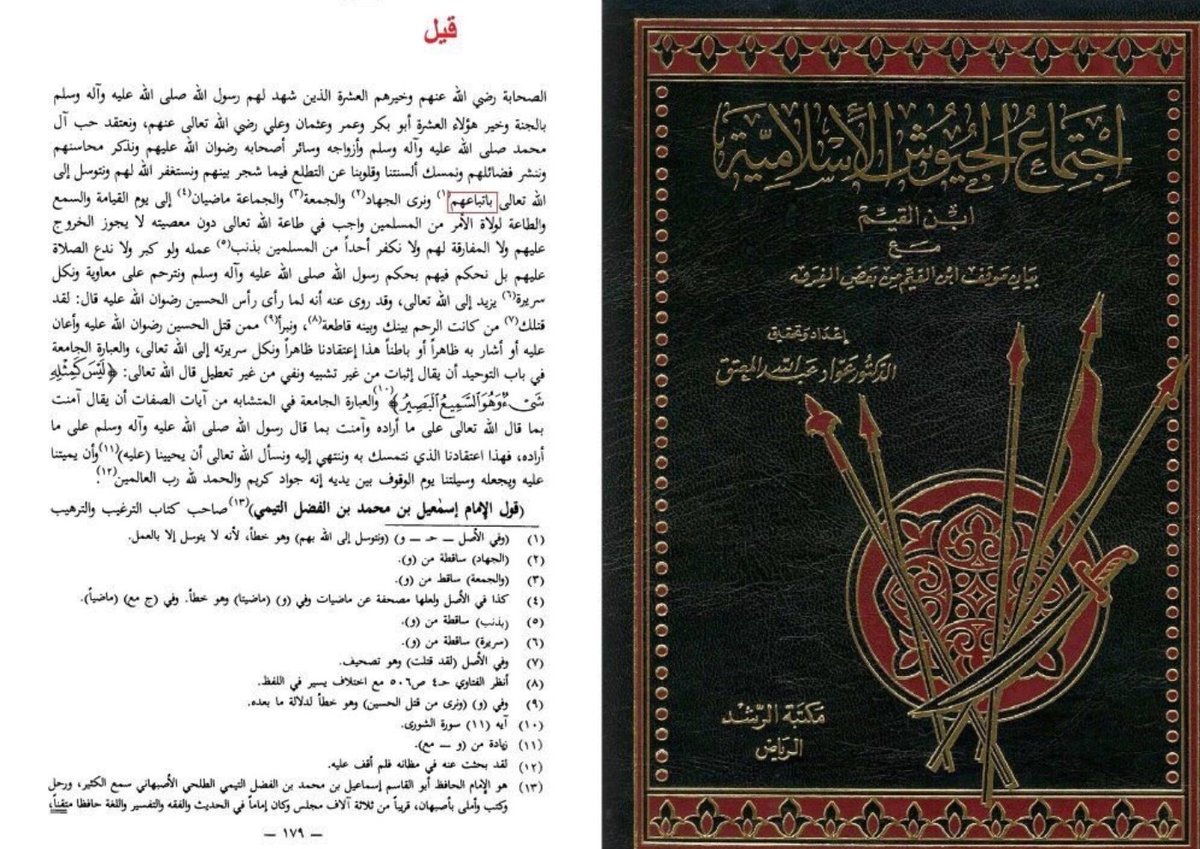 قيل
الصحابة رضي الله عنهم وخيرهم العشرة الذين شهد لهم رسول الله صلى الله عليه وآله وسلم
بالجنة وخير هؤلاء العشرة أبو بكر وعمر وعثمان وعلي رضي الله تعالى عنهم، ونعتقد حب آل
محمد صلى الله عليه وآله وسلم وأزواجه وسائر أصحابه رضوان الله عليهم ونذكر محاسنهم
وننشر فضائلهم ونمسك ألسنتنا وقلوبنا عن التطلع فيما شجر بينهم ونستغفر الله لهم ونتوسل إلى
الله تعالى باتباعهم(١) ونرى الجهاد(٢) والجمعة(٣) والجماعة ماضيان(٤) إلى يوم القيامة والسمع
والطاعة لولاة الأمر من المسلمين واجب في طاعة الله تعالى دون معصيته لا يجوز الخروج
عليهم ولا المفارقة لهم ولا نكفر أحداً من المسلمين بذنب(٥) عمله ولو كبر ولا ندع الصلاة
عليهم بل نحكم فيهم بحكم رسول الله صلى الله عليه وآله وسلم ونترحم على معاوية ونكل
سريرة(٦) يزيد إلى الله تعالى، وقد روى عنه أنه لما رأى رأس الحسين رضوان الله عليه قال: لقد
قتلك(٧) من كانت الرحم بينك وبينه قاطعة(٨)، ونبرأ(٩) ممن قتل الحسين رضوان الله عليه وأعان
عليه أو أشار به ظاهراً أو باطناً هذا إعتقادنا ظاهراً ونكل سريرته إلى الله تعالى، والعبارة الجامعة
في باب التوحيد أن يقال إثبات من غير تشبيه ونفي من غير تعطيل قال الله تعالى: ﴿لَيْسَ كَمِثْلِهِ
شَيْءٌ وَهُوَ السَّمِيعُ الْبَصِيرُ﴾(١٠) والعبارة الجامعة في المتشابه من آيات الصفات أن يقال آمنت
بما قال الله تعالى على ما أراده وآمنت بما قال رسول الله صلى الله عليه وآله وسلم على ما
أراده، فهذا اعتقادنا الذي نتمسك به وننتهي إليه ونسأل الله تعالى أن يحيينا (عليه)(١١) وأن يميتنا
عليه ويجعله وسيلتنا يوم الوقوف بين يديه إنه جواد كريم والحمد لله رب العالمين(١٢).
(قول الإمام إسمعيل بن محمد بن الفضل التيمي)(١٣) صاحب كتاب الترغيب والترهيب
(١) (وفي الأصل ــ حـ ــ و) (ونتوسل إلى الله بهم) وهو خطأ، لأنه لا يتوسل إلا بالعمل.
(٢) (الجهاد) ساقطة من (و).
(٣) (والجمعة) ساقط من (و).
(٤) كذا في الأصل ولعلها مصحفة عن ماضيات وفي (و) (ماضيتا) وهو خطأ. وفي (ج مع) (ماضياً).
(٥) (بذنب) ساقطة من (و).
(٦) (سريرة) ساقطة من (و).
(٧) وفي الأصل (لقد قتلت) وهو تصحيف.
(٨) أنظر الفتاوي حـ٤ ص٥٠٦ مع اختلاف يسير في اللفظ.
(٩) وفي (و) (ونرى من قتل الحسين) وهو خطأ لدلالة ما بعده.
(١٠) آيه (١١) سورة الشورى.
(١١) زيادة من (و ــ مع).
(١٢) لقد بحثت عنه في مظانه فلم أقف عليه.
(١٣) هو الإمام الحافظ أبو القاسم إسماعيل بن محمد بن الفضل التيمي الطلحي الأصبهاني سمع الكثير، ورحل
وكتب وأملى بأصبهان، قريباً من ثلاثة آلاف مجلس وكان إماماً في الحديث والفقه والتفسير واللغة حافظا متقناً،
— ١٧٩ —
اِجْتِمَاعُ الجُيُوشِ الإِسْلَامِيَّةِ
ابن القيم
مع
بيان موقف ابن القيم من بعض الفرق
إعداد وتحقيق
الدكتور عواد عبد الله المعتق
مكتبة الرشد
الرياض